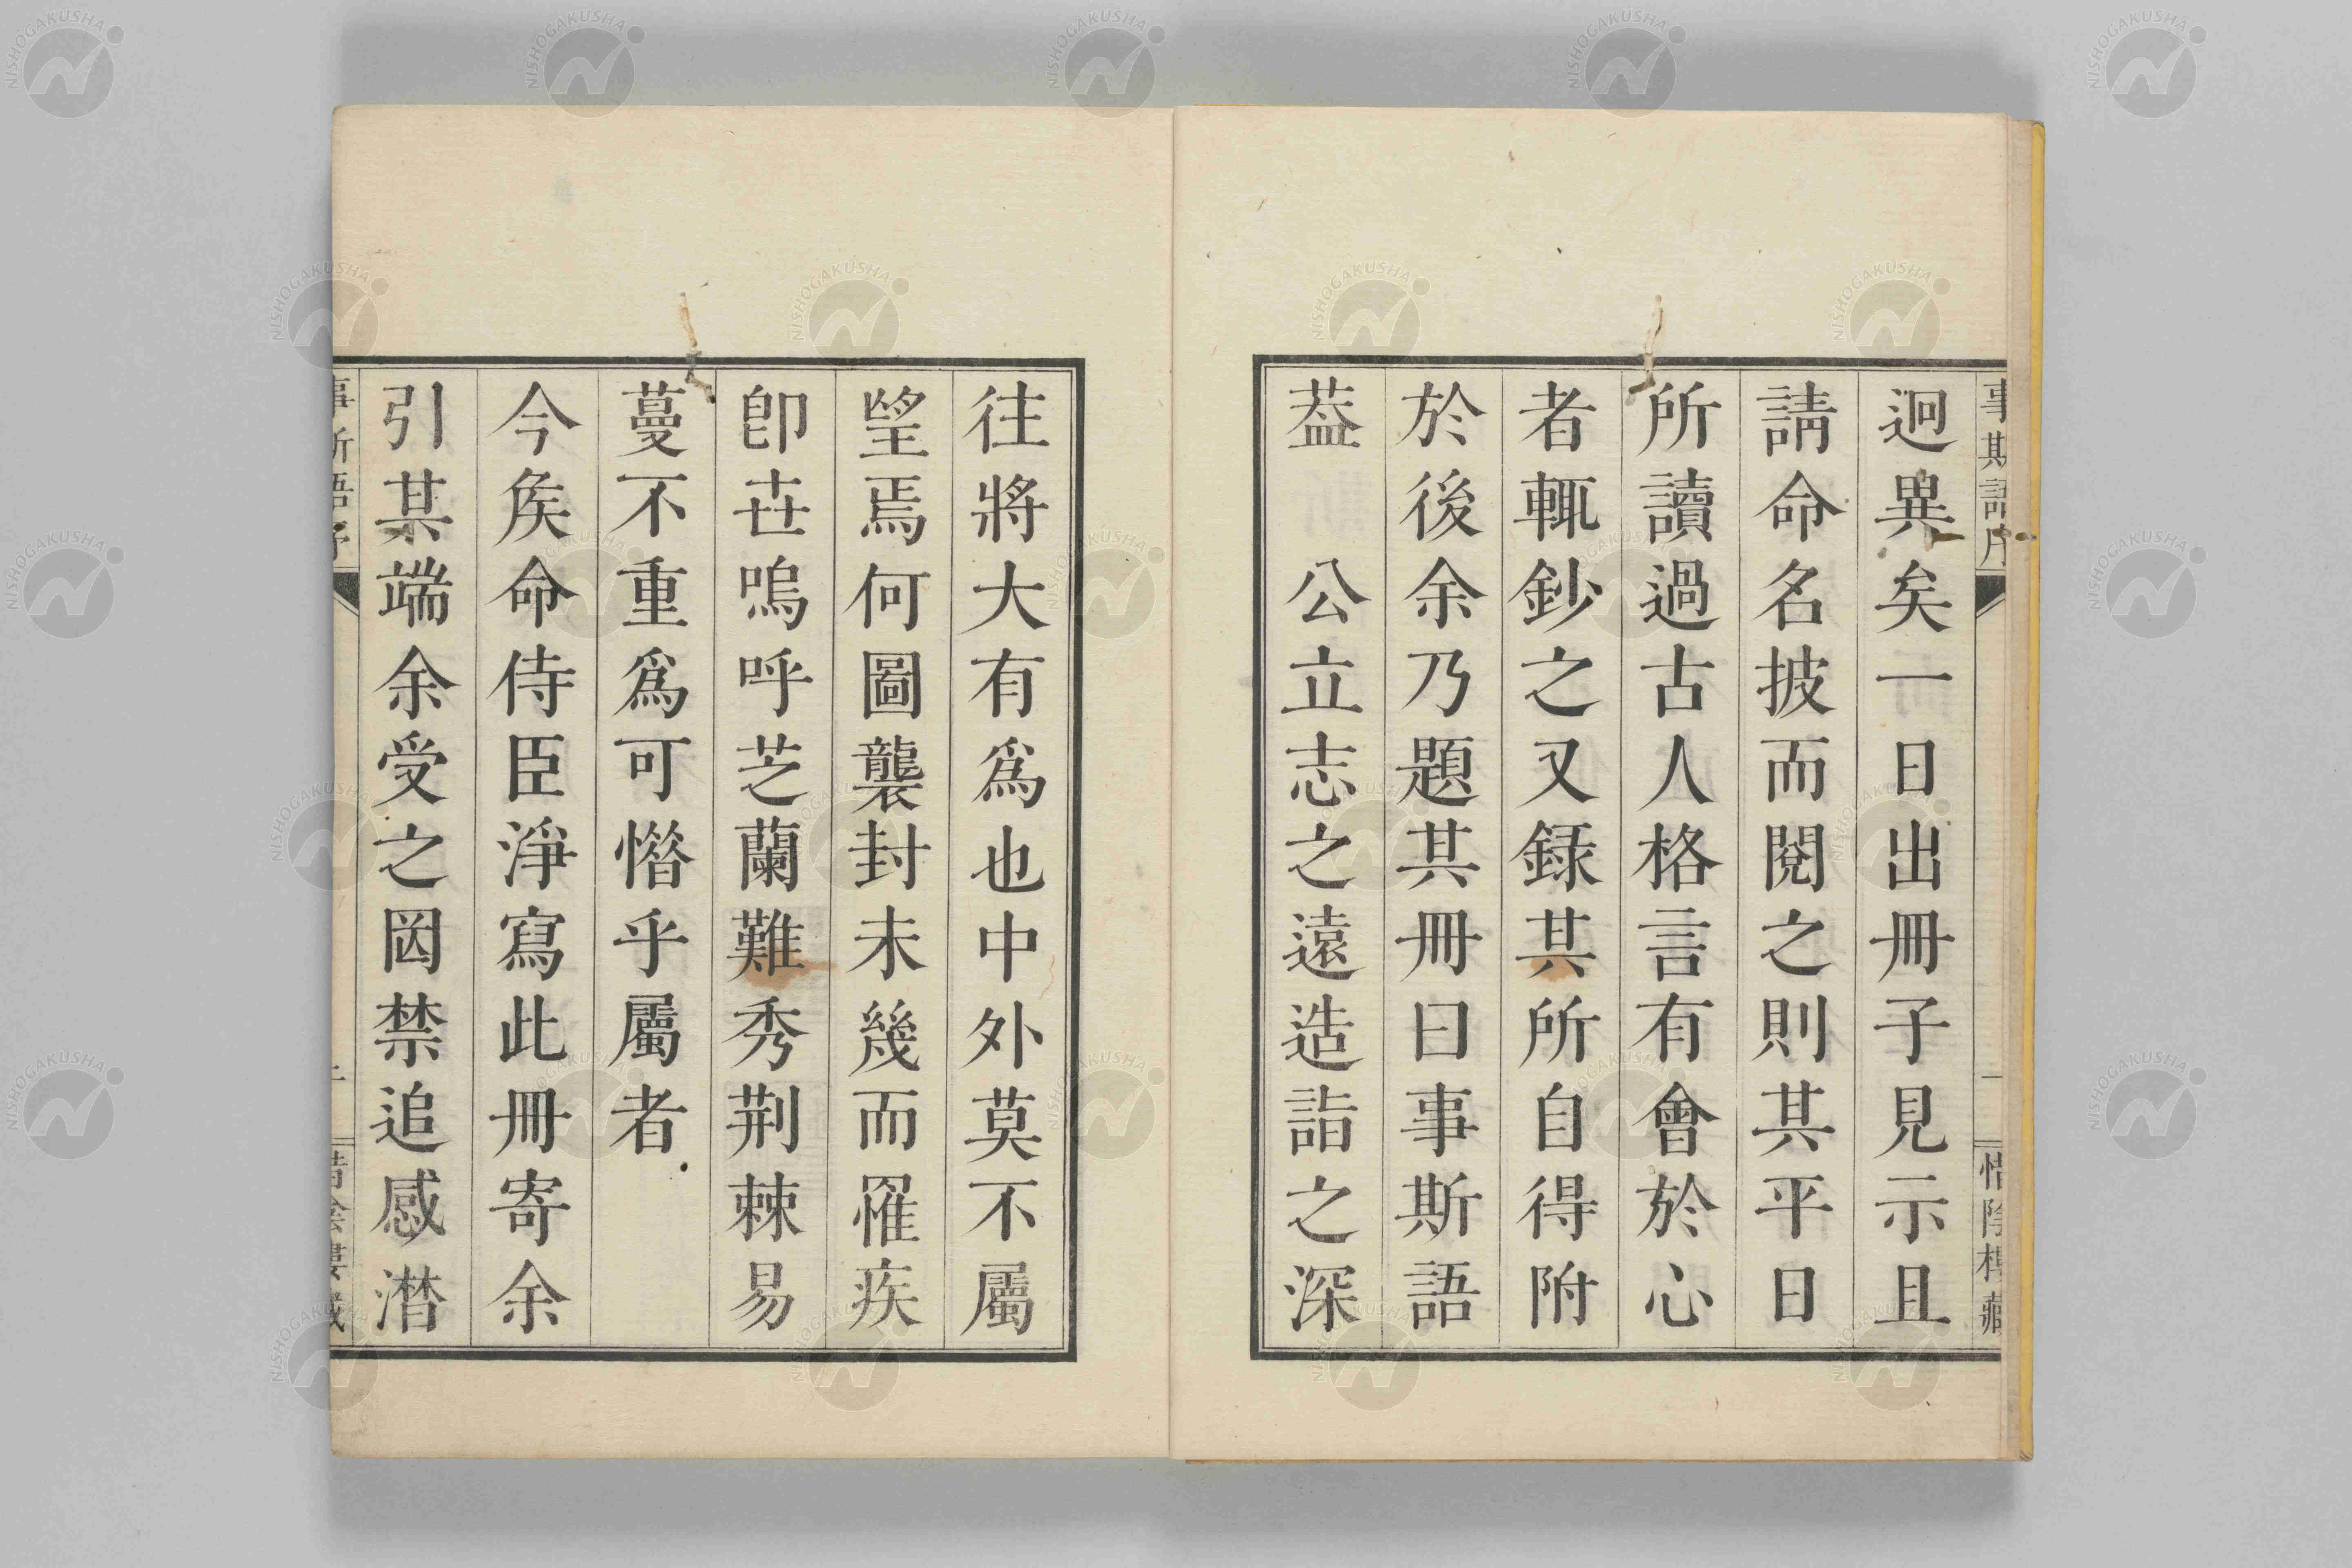 事斯語序 一 惜陰樓藏
迥異矣一日出冊子見示且
請命名披而閱之則其平日
所讀過古人格言有會於心
者輒鈔之又錄其所自得附
於後余乃題其冊曰事斯語
葢 公立志之遠造詣之深
往將大有爲也中外莫不屬
望焉何圖襲封未幾而罹疾
卽世嗚呼芝蘭難秀荆棘易
蔓不重爲可憯乎屬者
今矦命侍臣淨寫此冊寄余
引某端余受之罔禁追感潛
事斯語序 惜陰樓藏
NISHOGAKUSHA